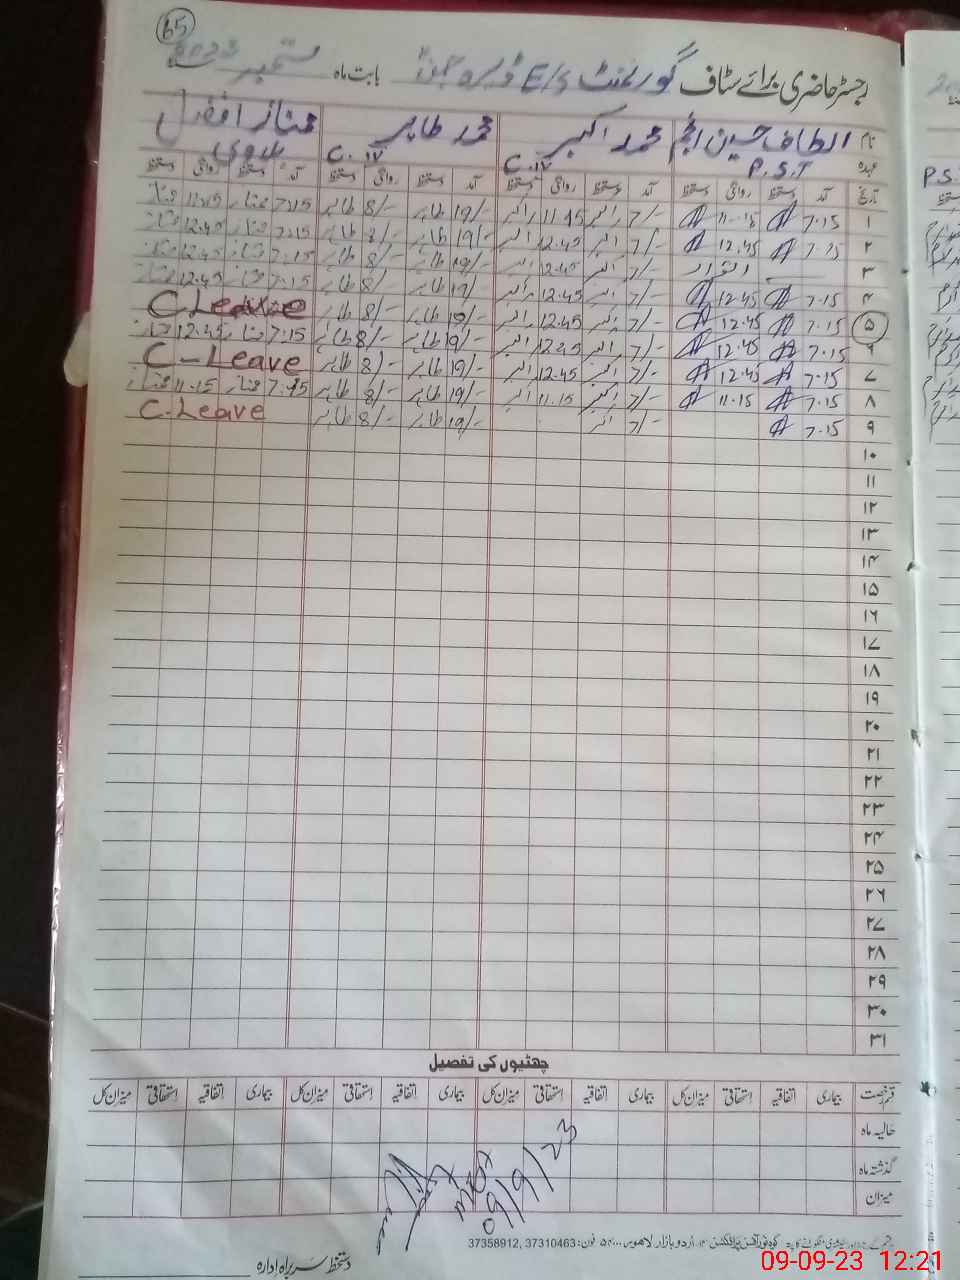 65
رجسٹر حاضری برائے سٹاف گورنمنٹ E/S بابت ماہ ستمبر 2023
نام الطاف حسین انجم محمد اکبر محمد طاہر ممتاز افضل
عہدہ P.S.T C.IV C.IV بلاوی
تاریخ آمد دستخط روانگی دستخط آمد دستخط روانگی دستخط آمد دستخط روانگی دستخط آمد دستخط روانگی دستخط
۱ 7.15 11.15 7/- اکبر 11.45 اکبر 19/- طاہر 8/- طاہر 7.15 ممتاز 11.15 ممتاز
۲ 7.15 12.45 7/- اکبر 12.45 اکبر 19/- طاہر 8/- طاہر 7.15 ممتاز 12.45 ممتاز
۳ اتوار 7/- اکبر 12.45 اکبر 19/- طاہر 8/- طاہر 7.15 ممتاز 12.45 ممتاز
۴ 7.15 12.45 7/- اکبر 12.45 اکبر 19/- طاہر 8/- طاہر 7.15 ممتاز 12.45 ممتاز
۵ 7.15 12.45 7/- اکبر 12.45 اکبر 19/- طاہر 8/- طاہر C.Leave
۶ 7.15 12.45 7/- اکبر 12.45 اکبر 19/- طاہر 8/- طاہر 7.15 ممتاز 12.45 ممتاز
۷ 7.15 12.45 7/- اکبر 12.45 اکبر 19/- طاہر 8/- طاہر C-Leave
۸ 7.15 11.15 7/- اکبر 11.15 اکبر 19/- طاہر 8/- طاہر 7.15 ممتاز 11.15 ممتاز
۹ 7.15 7/- اکبر 19/- طاہر 8/- طاہر C.Leave
۱۰
۱۱
۱۲
۱۳
۱۴
۱۵
۱۶
۱۷
۱۸
۱۹
۲۰
۲۱
۲۲
۲۳
۲۴
۲۵
۲۶
۲۷
۲۸
۲۹
۳۰
۳۱
چھٹیوں کی تفصیل
قسم رخصت بیماری اتفاقیہ استحقاقی میزان کل بیماری اتفاقیہ استحقاقی میزان کل بیماری اتفاقیہ استحقاقی میزان کل بیماری اتفاقیہ استحقاقی میزان کل
حالیہ ماہ
گذشتہ ماہ
میزان
09/9/23
اردو بازار لاہور فون: 37310463, 37358912
دستخط سربراہ ادارہ
09-09-23 12:21